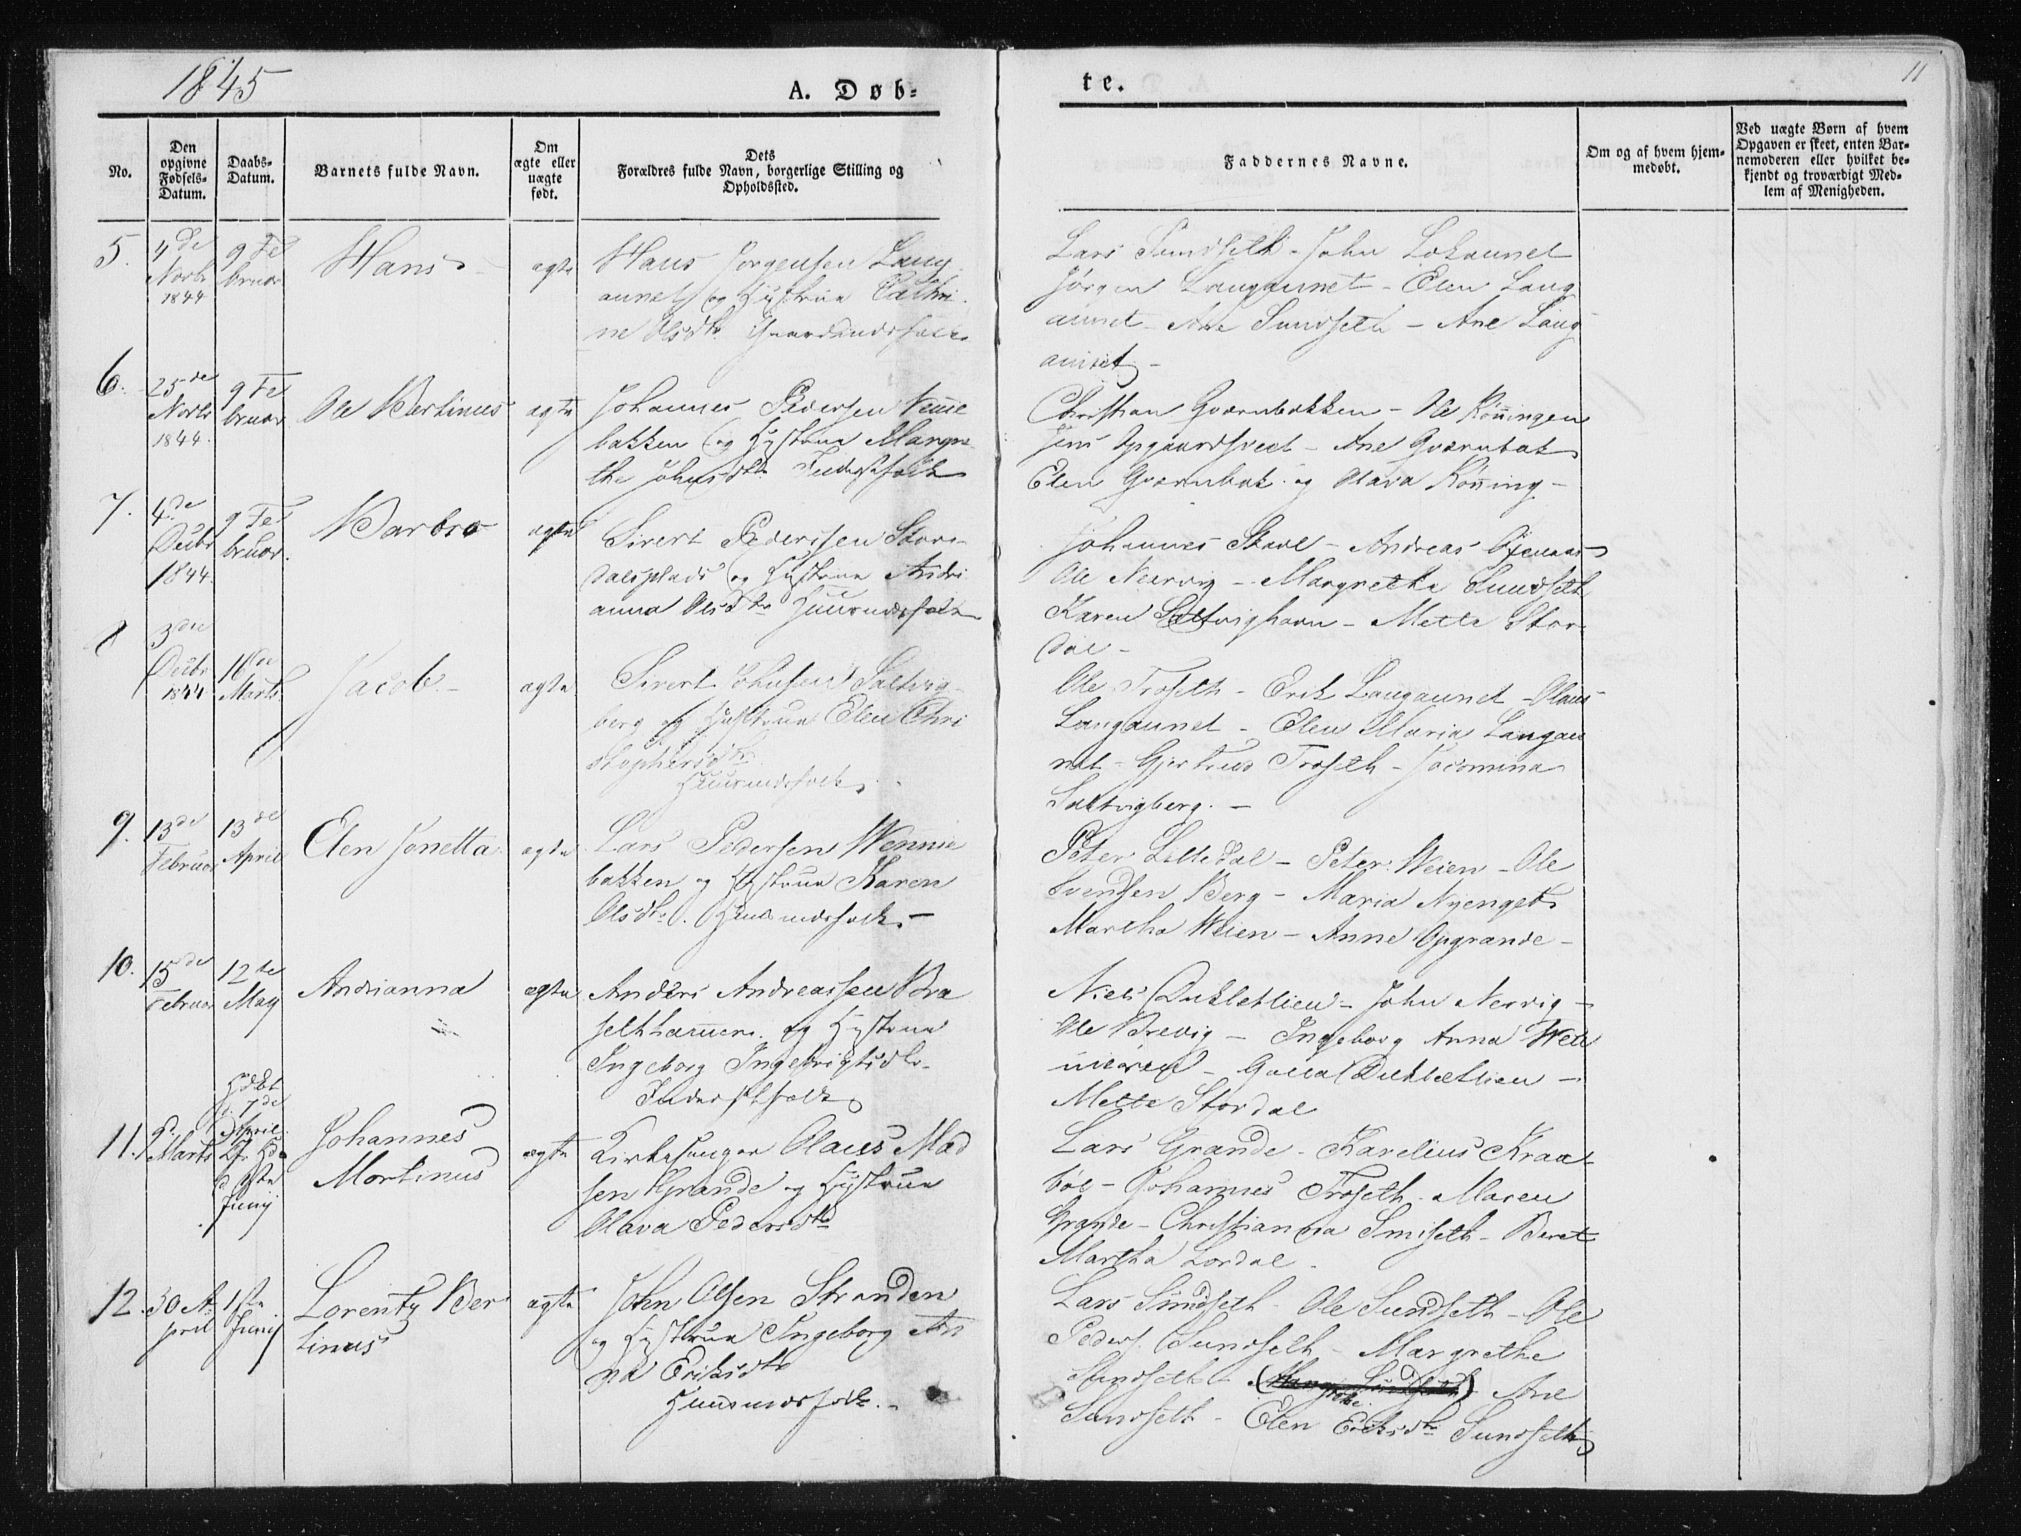 1845
A. Døb-
te.
11
No.
Den opgivne Fødsels-Datum.
Daabs-Datum.
Barnets fulde Navn.
Om ægte eller uægte født.
Dets Forældres fulde Navn, borgerlige Stilling og Opholdssted.
Faddernes Navne.
Om og af hvem hjem-medøbt.
Ved uægte Børn af hvem Opgaven er skeet, enten Bar-nemoderen eller hvilket be-kjendt og troværdigt Med-lem af Menigheden.
5.
4de
Novbr
1844
9 Fe
bruar
Hans
ægte
Hans Jørgensen Lang
aunet og Hustrue Cathri
ne Olsdtr. Gaardmandsfolk
Lars Sundseth - John
Jørgen Langaunet - Elen Lang
aunet - Ane Sundseth - Ane Lang
aunet -
6.
25de
Novbr
1844.
9 Fe
bruar
Ole Bertinus
ægte
Johannes Pedersen Venne
bakken og Hustrue Margre
the Johnsdtr. Inderstfolk
Christian Qværnbakken - Ole Rønningen
Jens Opgaardsveet - Ane Qværnbak
Elen Qværnbak og Olava Rønning -
7.
4de
Decbr
1844.
9 Fe
bruar.
Barbro
ægte
Sivert Pederssen Stor-
dalsplads og Hustrue Andri
anna Olsdtr Huusmdsfolk
Johannes Stavl - Andreas
Ole Nervig - Margrethe Sundseth
Karen Saltvighavn - Mette Stor-
dal -
8
3die
Decbr
1844
16de
Marts
Jacob -
ægte
Sivert Johnsen Saltvig-
berg og Hustrue Elen Chri
stophersdtr.
Huusmdsfolk
Ole Troseth - Erik Langaunet - Olaus
Langaunet - Elen Maria Langau
net - Gjertrud Troseth - Jacomina
Saltvigberg. -
9.
13de
Februar
13de
April
Elen Jonetta
ægte
Lars Pedersen Wennie
bakken og Hustrue Karen
Olsdtr. Huusmdsfolk -
Peter Lilledal - Peter Weien - Ole
Svendsen Berg - Maria Nyenget
Martha Weien - Anne Opgrande -
10.
15de
Februar
12te
May
Andrianna
ægte
Anders Andreassen Bra
sethhammer. og Hustrue
Ingeborg Ingebrigtsdtr.
Inderstfolk
Niels Duklætlien - John Nervig -
Ole Brevig - Ingeborg Anna Wen
- Duklætlien -
Mette Stordal
11.
9de
Marts
Hdbt
17de
April
1ste
Junij
Johannes
Mortinus
ægte
Kirkesanger Olaus Mad
sen Grande og Hustrue
Olava Pedersdtr
Lars Grande - Karelius Kraa
bøl - Johannes Troseth - Maren
Grande - Christianna Smiseth - Beret
Martha Lordal -
12.
30 A-
pril
1ste
Junij
Lorentz Ber
tinus
ægte
John Olsen Stranden
og Hustrue Ingeborg An
na Eriksdtr
Huusmdsfolk. -
Lars Sundseth - Ole Sundseth - Ole
Peders. Sundseth - Margrethe
Sundseth - Ane
Sundseth - Elen Eriksdtr Sundseth